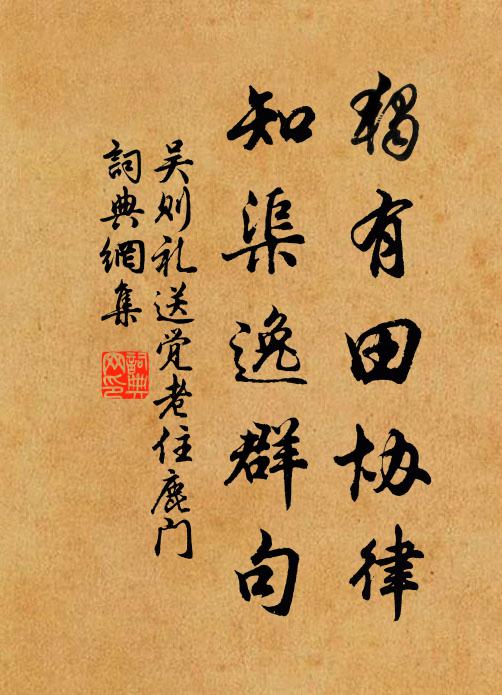 獨有田协律
知渠逸群句
吴则礼送觉老住鹿门
詞典網集
詞典網印